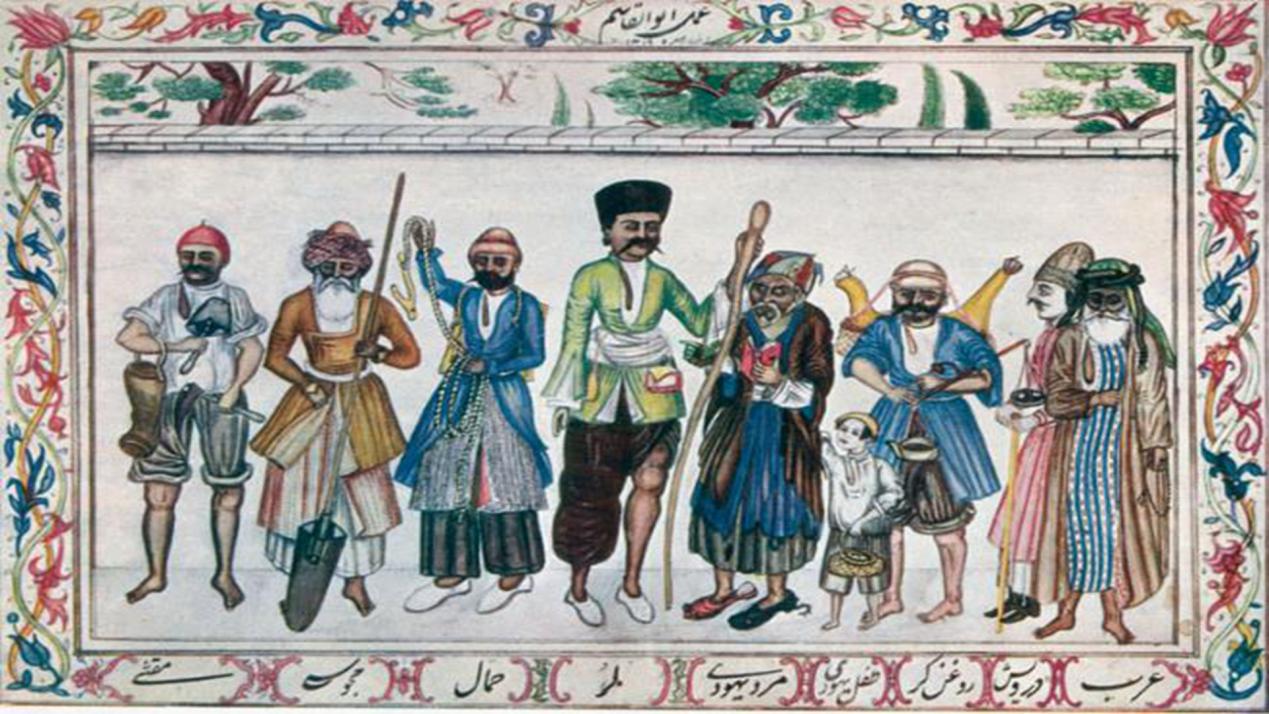 عمل ابوالقاسم
عرب درویش روغن گر طفل یهودی مرد یهودی حمال مجوسی مقنی